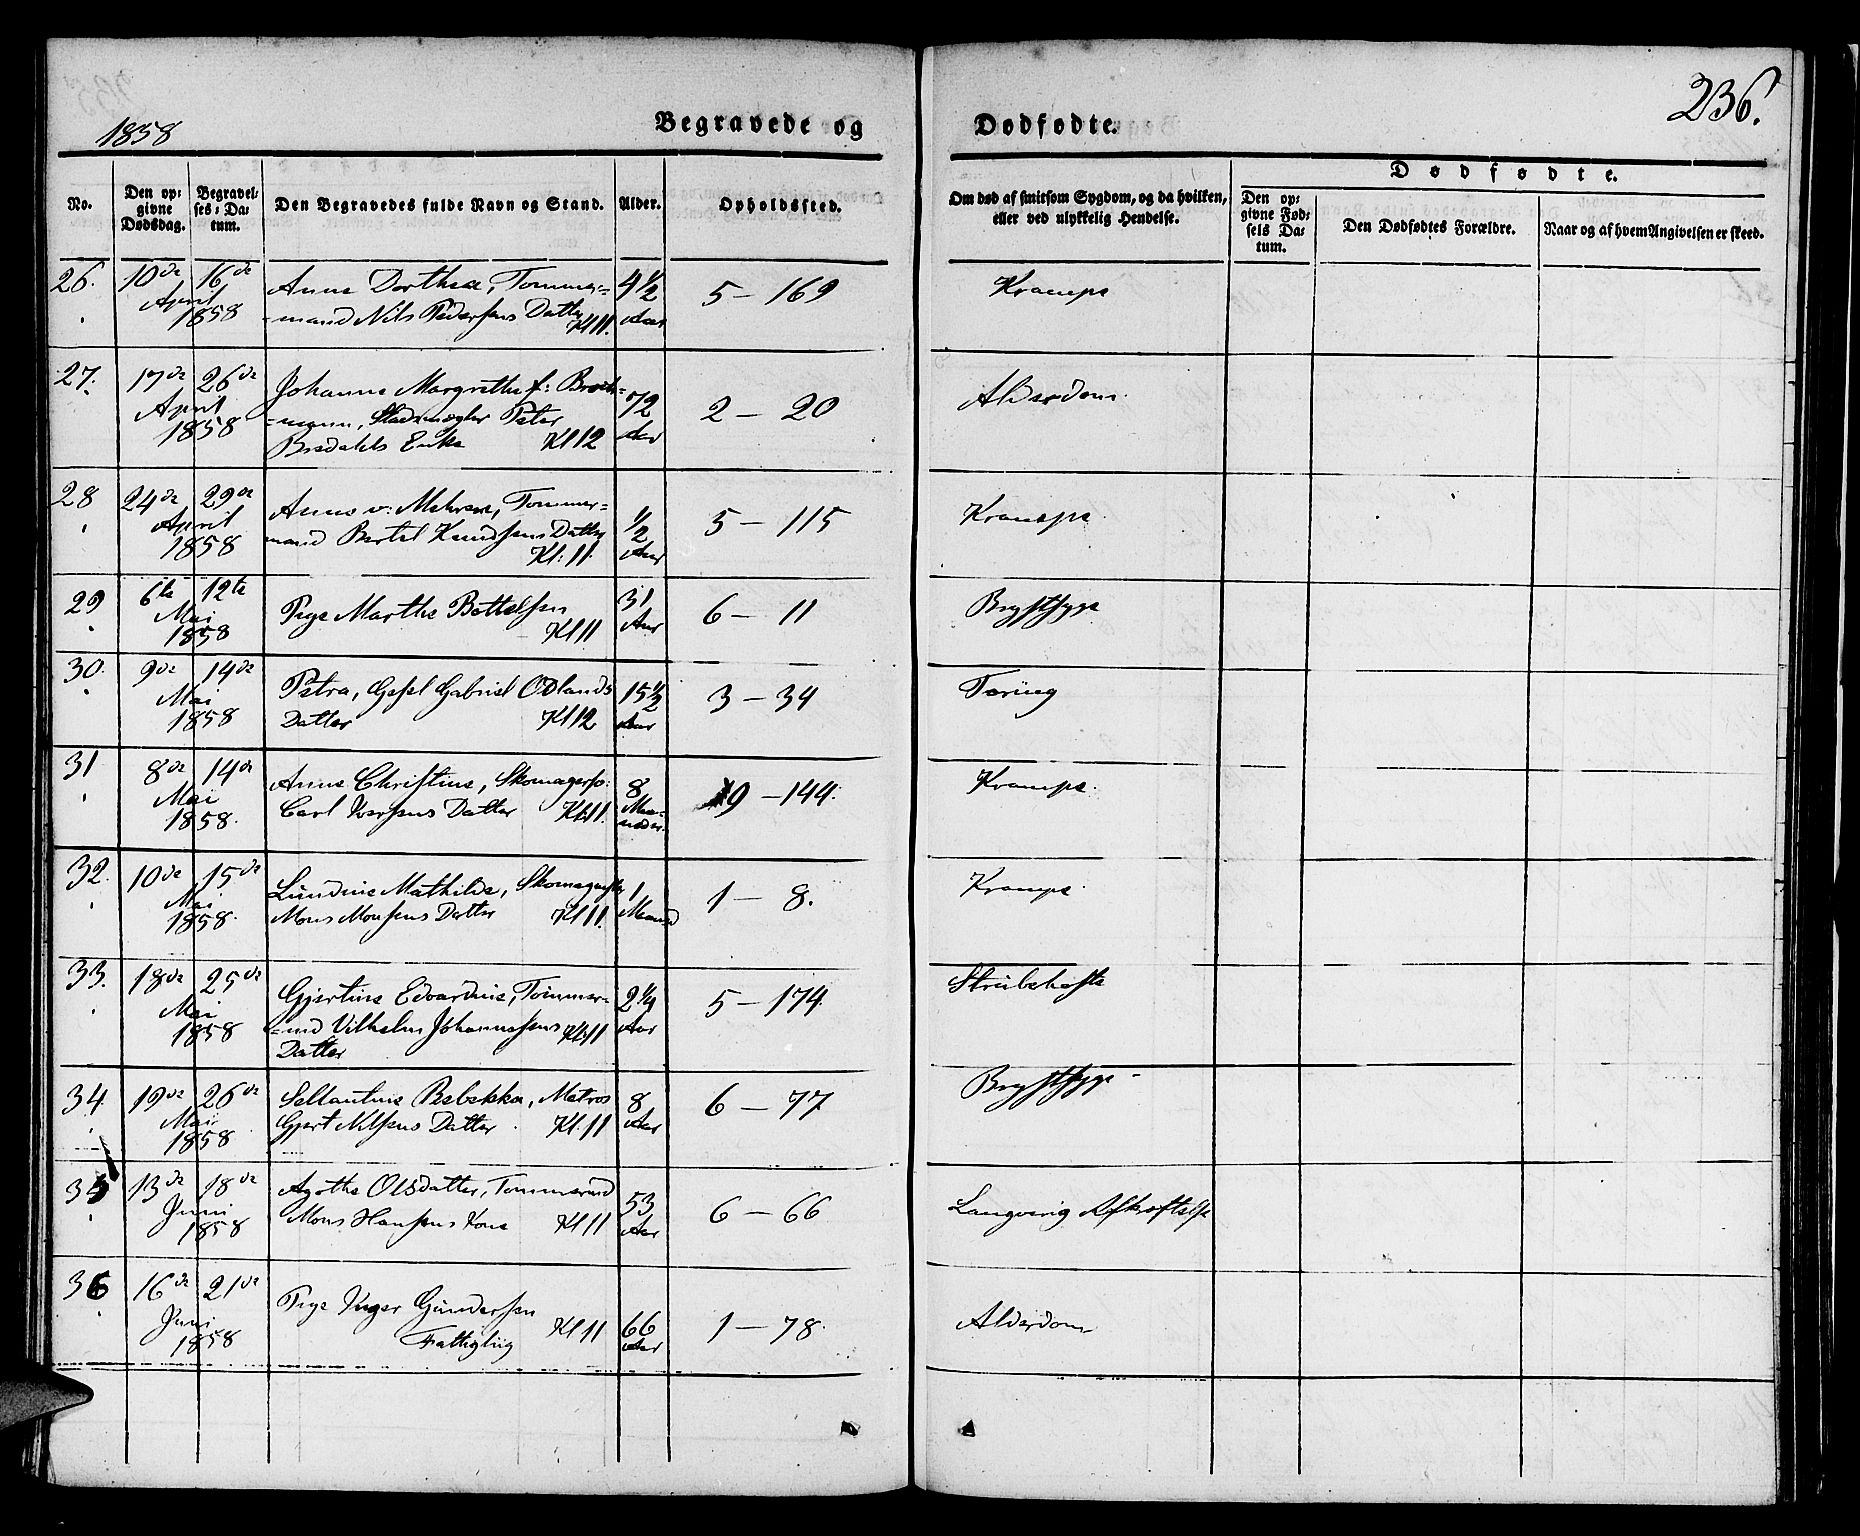 1858
Begravede og Dødfødte.
236.
No.
Den op=
givne
Dødsdag.
Begravel=
ses=Da=
tum.
Den Begravedes fulde Navn og Stand.
Alder.
Opholdssted.
Om død af smitsom Sygdom, og da hvilken,
eller ved ulykkelig Hendelse.
Dødfødte.
Den op=
givne Fød=
sels Da=
tum.
Den Dødfødtes Forældre.
Naar og af hvem Angivelsen er skeed.
26. 10de 16de
April
1858
Anne Dorthea, Tømmer=
=mand Nils Pedersens Datter
Kl 11.
4 1/2
Aar
5 – 169
Krampe
27. 17de 26de
April
1858
Johanne Margrethe f: Broch=
=mann, Stadsmægler Peter
Bredahls Enke Kl 12
72
Aar
2 – 20
Alderdom
28 24de 29de
April
1858
Anne Tømmer=
mand Bertel Knudsens Datter
Kl: 11
1/2
Aar
5 – 115
Krampe
29 6te 12te
Mai
1858
Pige Marthe Bottelsen
Kl 11
31
Aar
6 – 11
Brystsyge
30. 9de 14de
Mai
1858
Petra, Gesel Gabriel Ødlands
Datter Kl 12
15 1/2
Aar
3 – 34
Tæring
31 8de 14de
Mai
1858.
Anne Christine, Skomager
Carl Iversens Datter Kl 11.
8
Maa=
neder
9 – 144.
Krampe.
32. 10de 15de
Mai
1858.
Lundine Mathilde,
Mons Monsens Datter Kl 11.
1
Maaned
1 – 8.
Krampe.
33. 18de 25de
Mai
1858
Gjertine Edvardine, Tømmer=
=md Vilhelm Johannesens Kl 11
Datter
2 1/4
Aar
5 – 174.
Strubehoste
34. 19de 26de
Mai
1858
Rebekka, Matros
Gjert Nilsens Datter Kl. 11
8
Aar
6 – 77
Brystsyge
35 13de 18de
Juni
1858
Agathe Olsdatter, Tømmermd
Mons Hansens Kone Kl 11
53
Aar
6 – 66
Langvarig Afkræftelse
36 16de 21de
Juni
1858
Pige Inger Gundersen
Kl 11
Fattiglig
66
Aar
1 – 78.
Alderdom